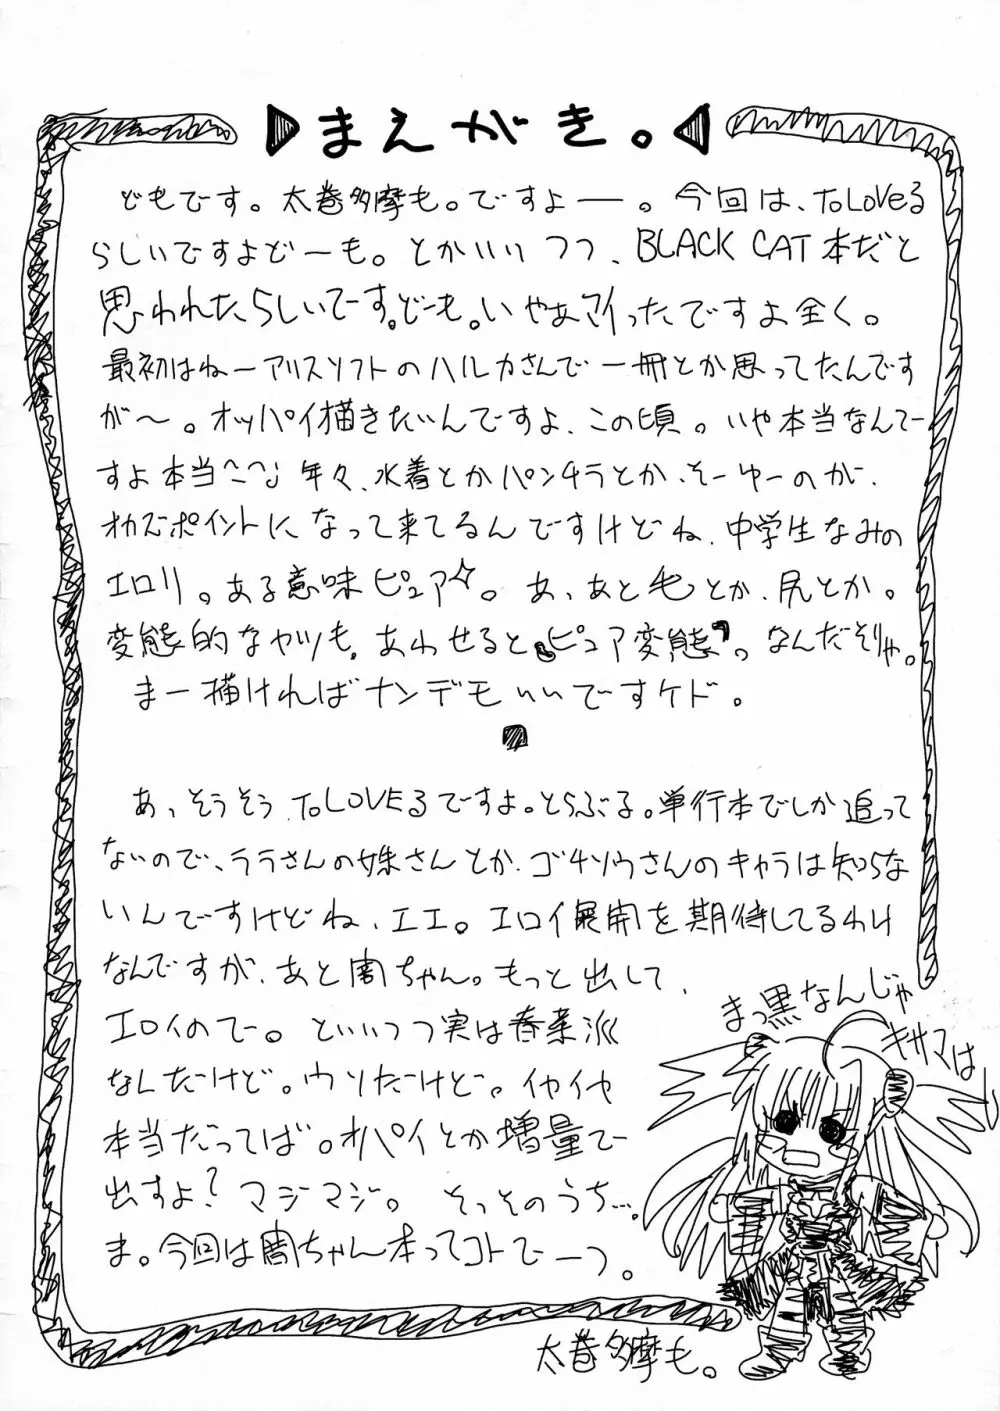 まえがき。
どもです。太巻多摩も。ですよー。今回は、ToLoVEる
らしいですよどーも。とかいいつつ、BLACK CAT本だと
思われたらしいでーす。どーも。いやあマイったですよ全く。
最初はねーアリスソフトのハルカさんで一冊とか思ってたんです
が〜。オッパイ描きたいんですよ、この頃。いや本当なんてー
すよ本当^^; 年々、水着とかパンチラとか、そーゆーのが、
オカズポイントになって来てるんですけどね、中学生なみの
エロリ。ある意味ピュア☆。あ、あと毛とか、尻とか。
変態的なヤツも。あわせると「ピュア変態」。なんだそりゃ。
まー描ければナンデモいいですケド。
あ、そうそう、ToLOVEるですよ。とらぶる。単行本でしか追って
ないので、ララさんの妹さんとか、ゴチソウさんのキャラは知らな
いんですけどね、エエ。エロイ展開を期待してるわけ
なんですが、あと闇ちゃん。もっと出して、
エロイのでー。といいつつ実は春菜派
なんだけど。ウソだけど。イヤイヤ
本当だってば。オパイとか増量で
出すよ？マジマジ。そっそのうち…。
ま。今回は闇ちゃん本ってコトでーつ。
まっ黒なんじゃ
キサマはっ
太巻多摩も。